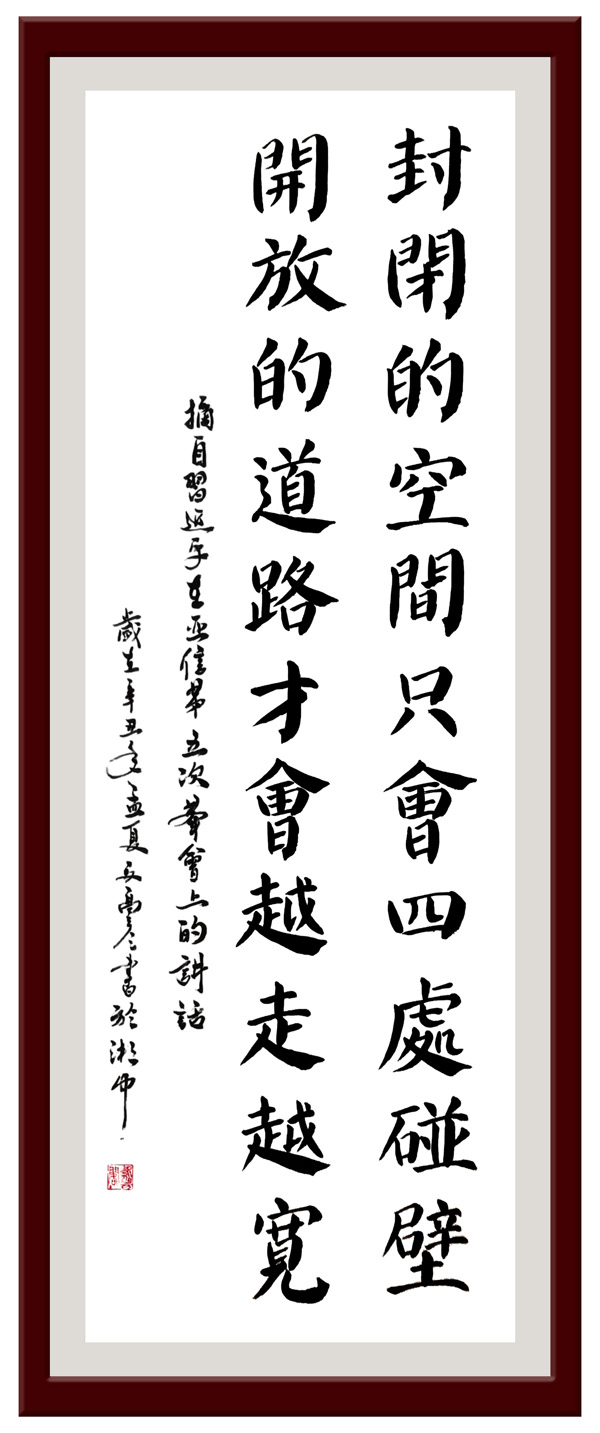 封閉的空間只會四處碰壁
開放的道路才會越走越寬
摘自習近平在亚信第五次峯會上的講話
歲在辛丑年孟夏 書於湘中